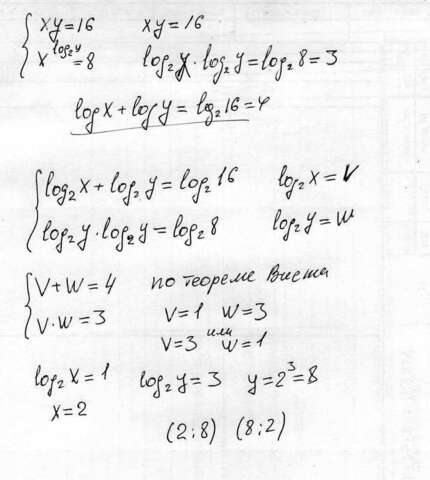 xy=16 xy=16
x^log₂y=8 log₂y·log₂y=log₂8=3
log x+log y=log₂16=4
log₂x+log₂y=log₂16 log₂x=V
log₂y·log₂y=log₂8 log₂y=W
V+W=4 по теореме Виета
V·W=3 V=1 W=3
или
V=3 W=1
log₂x=1 log₂y=3 y=2³=8
x=2
(2;8) (8;2)